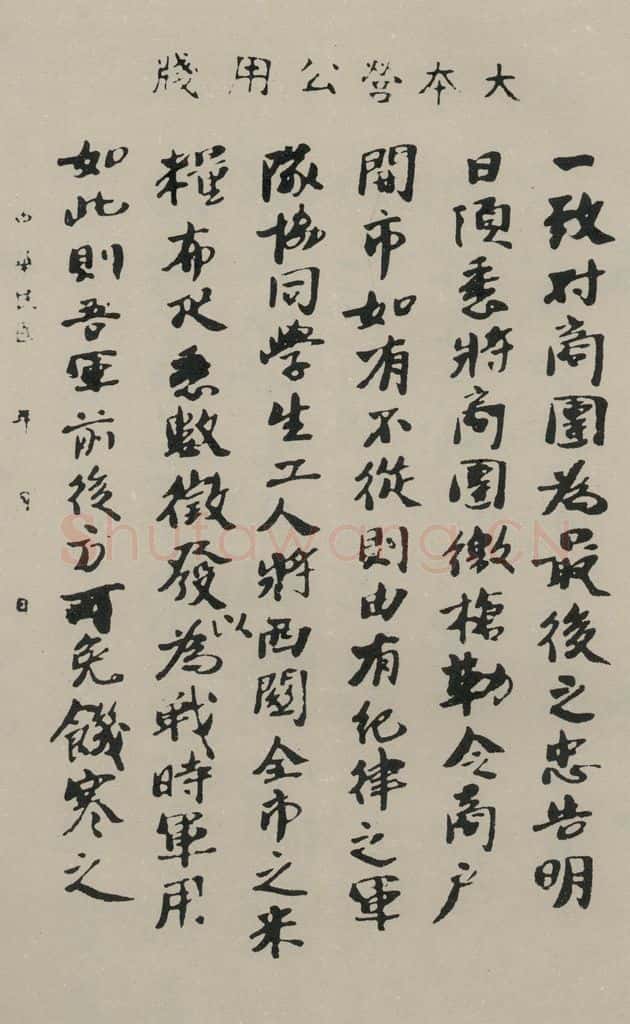 大本營公用牋
一致对商團為最後之忠告明
日須悉將商團繳槍勒令商户
開市如有不從則由有紀律之軍
隊協同學生工人將西關全市之米
糧布疋悉數徵發以為戰時軍用
如此則吾軍前後方可免饑寒之
中華民國 年 月 日
Shufawang.CN